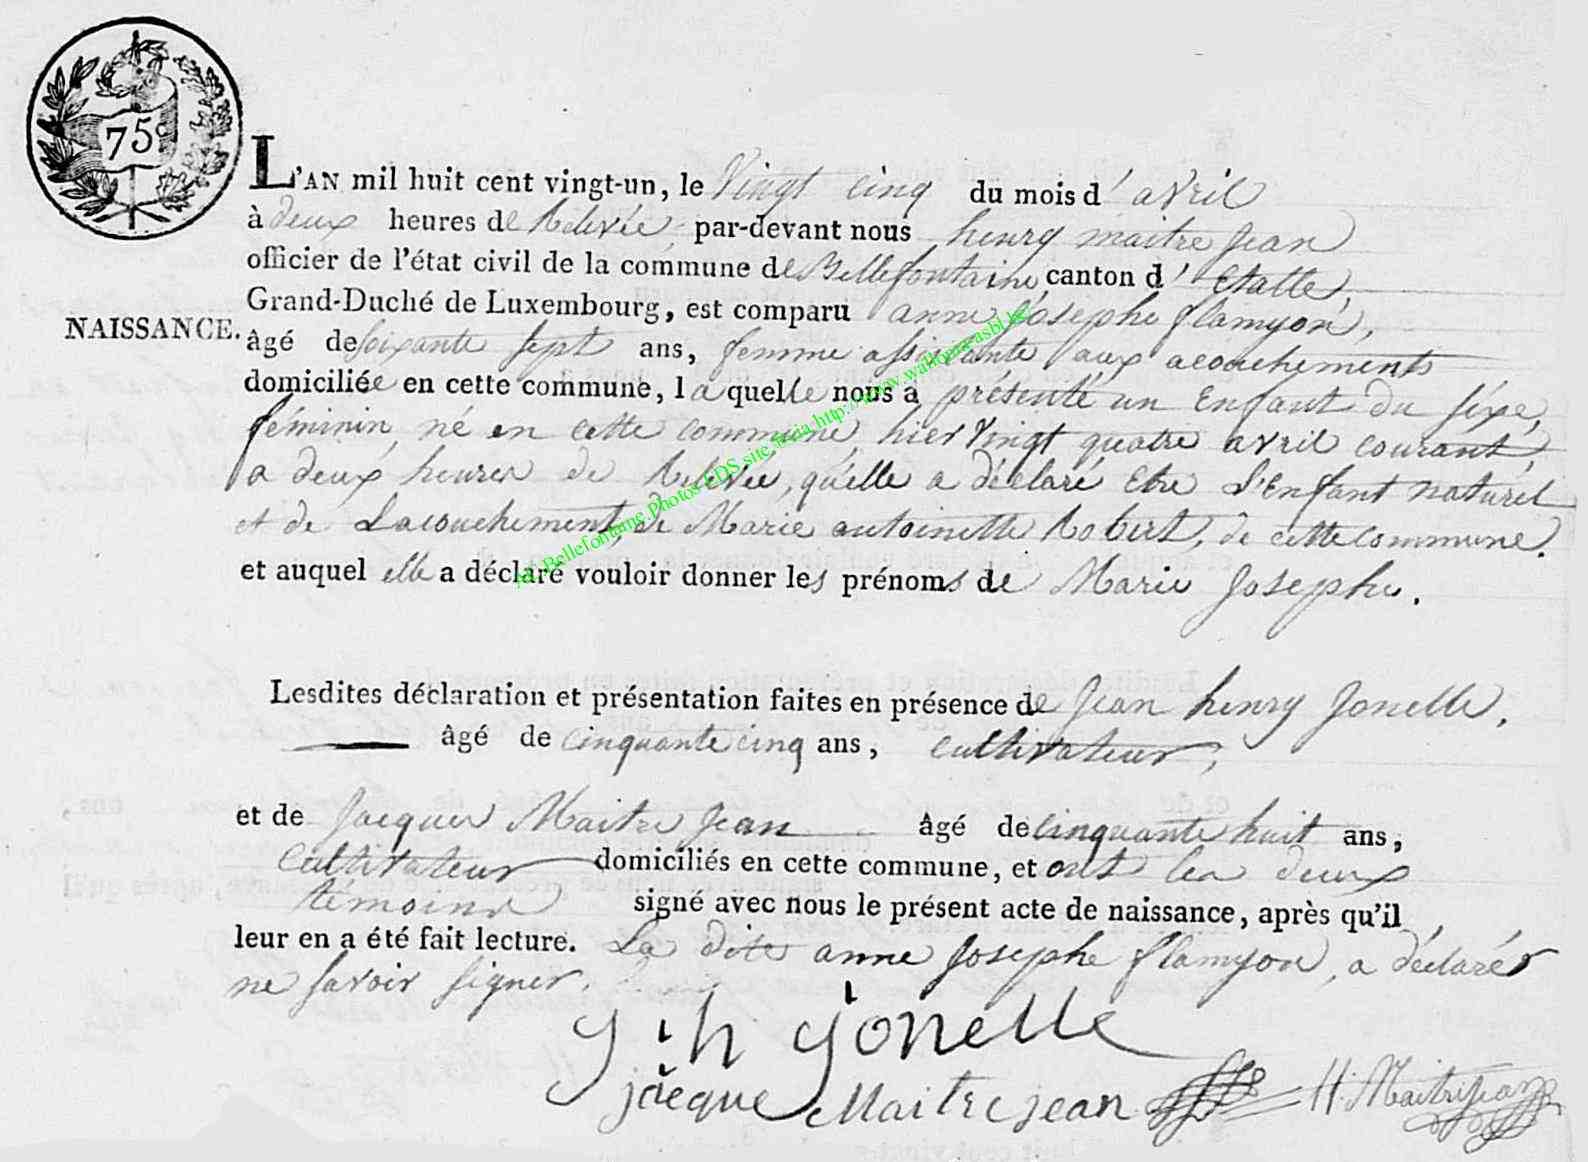 75c
L'AN mil huit cent vingt-un, le Vingt cinq du mois d' avril
à deux heures de Relevée, par-devant nous henry maitre jean
officier de l'état civil de la commune de Bellefontaine, canton d' Etalle,
Grand-Duché de Luxembourg, est comparu anne josephe flamyon,
NAISSANCE.
âgé de soixante sept ans, femme assistante aux acouchements
domiciliée en cette commune, laquelle nous a présenté un Enfant du séxe,
féminin, né en cette commune, hier Vingt quatre avril courant,
a deux heures de Relevée, qu'elle a déclaré Etre L'Enfant naturel
et de Lacouchement, de Marie antoinette Robert, de cette commune.
et auquel elle a déclaré vouloir donner les prénoms de Marie Josephe.
Lesdites déclaration et présentation faites en présence de Jean henry Jonelle,
âgé de cinquante cinq ans, cultivateur,
et de Jacques Maitre jean âgé de cinquante huit ans,
cultivateur domiciliés en cette commune, et ont les deux
témoins signé avec nous le présent acte de naissance, après qu'il
leur en a été fait lecture. La dite anne Josephe flamyon, a déclarér
ne savoir signer.
j h jonelle
jacque Maitre jean H. Maitrejean
Bellefontaine Photos FDS site Asia http://www.wallonia-asbl.be